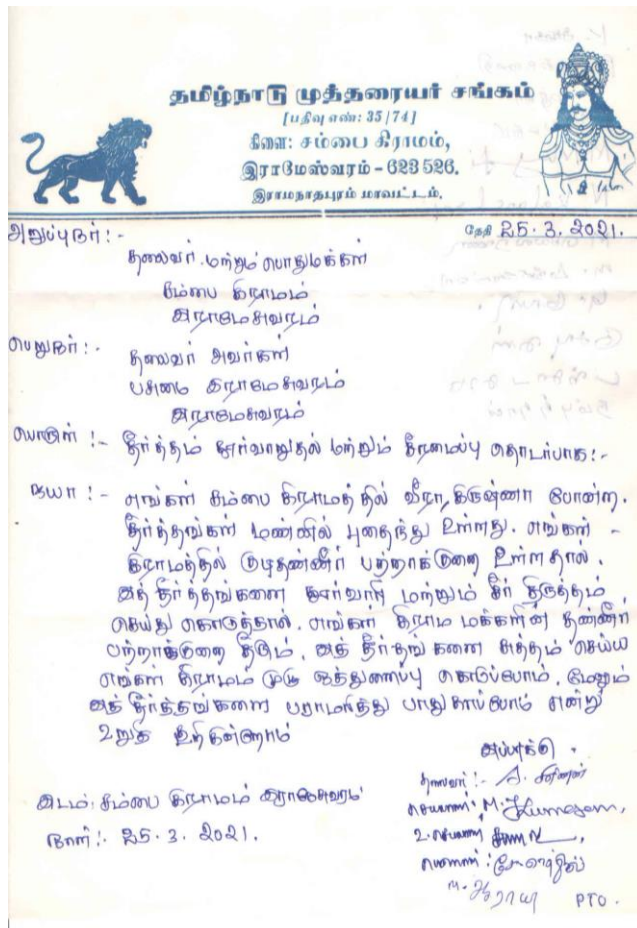 தமிழ்நாடு முத்தரையர் சங்கம்
[பதிவு எண்: 35/74]
கிளை: சம்பை கிராமம்,
இராமேஸ்வரம் - 623 526.
இராமநாதபுரம் மாவட்டம்.
அனுப்புநர் :-
தேதி 25.3.2021.
தலைவர் மற்றும் பொதுமக்கள்
சம்பை கிராமம்
இராமேசுவரம்
பெறுநர் :-
தலைவர் அவர்கள்
பசுமை இராமேசுவரம்
இராமேசுவரம்
பொருள் :- தீர்த்தம் தூர்வாறுதல் மற்றும் சீரமைப்பு தொடர்பாக :-
ஐயா :- எங்கள் சம்பை கிராமத்தில் வீரா, கிருஷ்ணா போன்ற
தீர்த்தங்கள் மண்ணில் புதைந்து உள்ளது. எங்கள்
கிராமத்தில் குடிதண்ணீர் பற்றாக்குறை உள்ளதால்.
அத் தீர்த்தங்களை தூர்வாரி மற்றும் சீர் திருத்தம்
செய்து கொடுத்தால். எங்கள் கிராம மக்களின் தண்ணீர்
பற்றாக்குறை தீரும். அத் தீர்த்தங்களை சுத்தம் செய்ய
எங்கள் கிராமம் முழு ஒத்துழைப்பு கொடுப்போம். மேலும்
அத் தீர்த்தங்களை பராமரித்து பாதுகாப்போம் என்று
உறுதி கூறுகின்றோம்
இப்படிக்கு.
தலைவர் :- A.
இடம் : சம்பை கிராமம் இராமேசுவரம்
செயலாளர் : M.
நாள் :- 25.3.2021.
உ.செயலாளர்
பொருளாளர் :
M.
PTO.